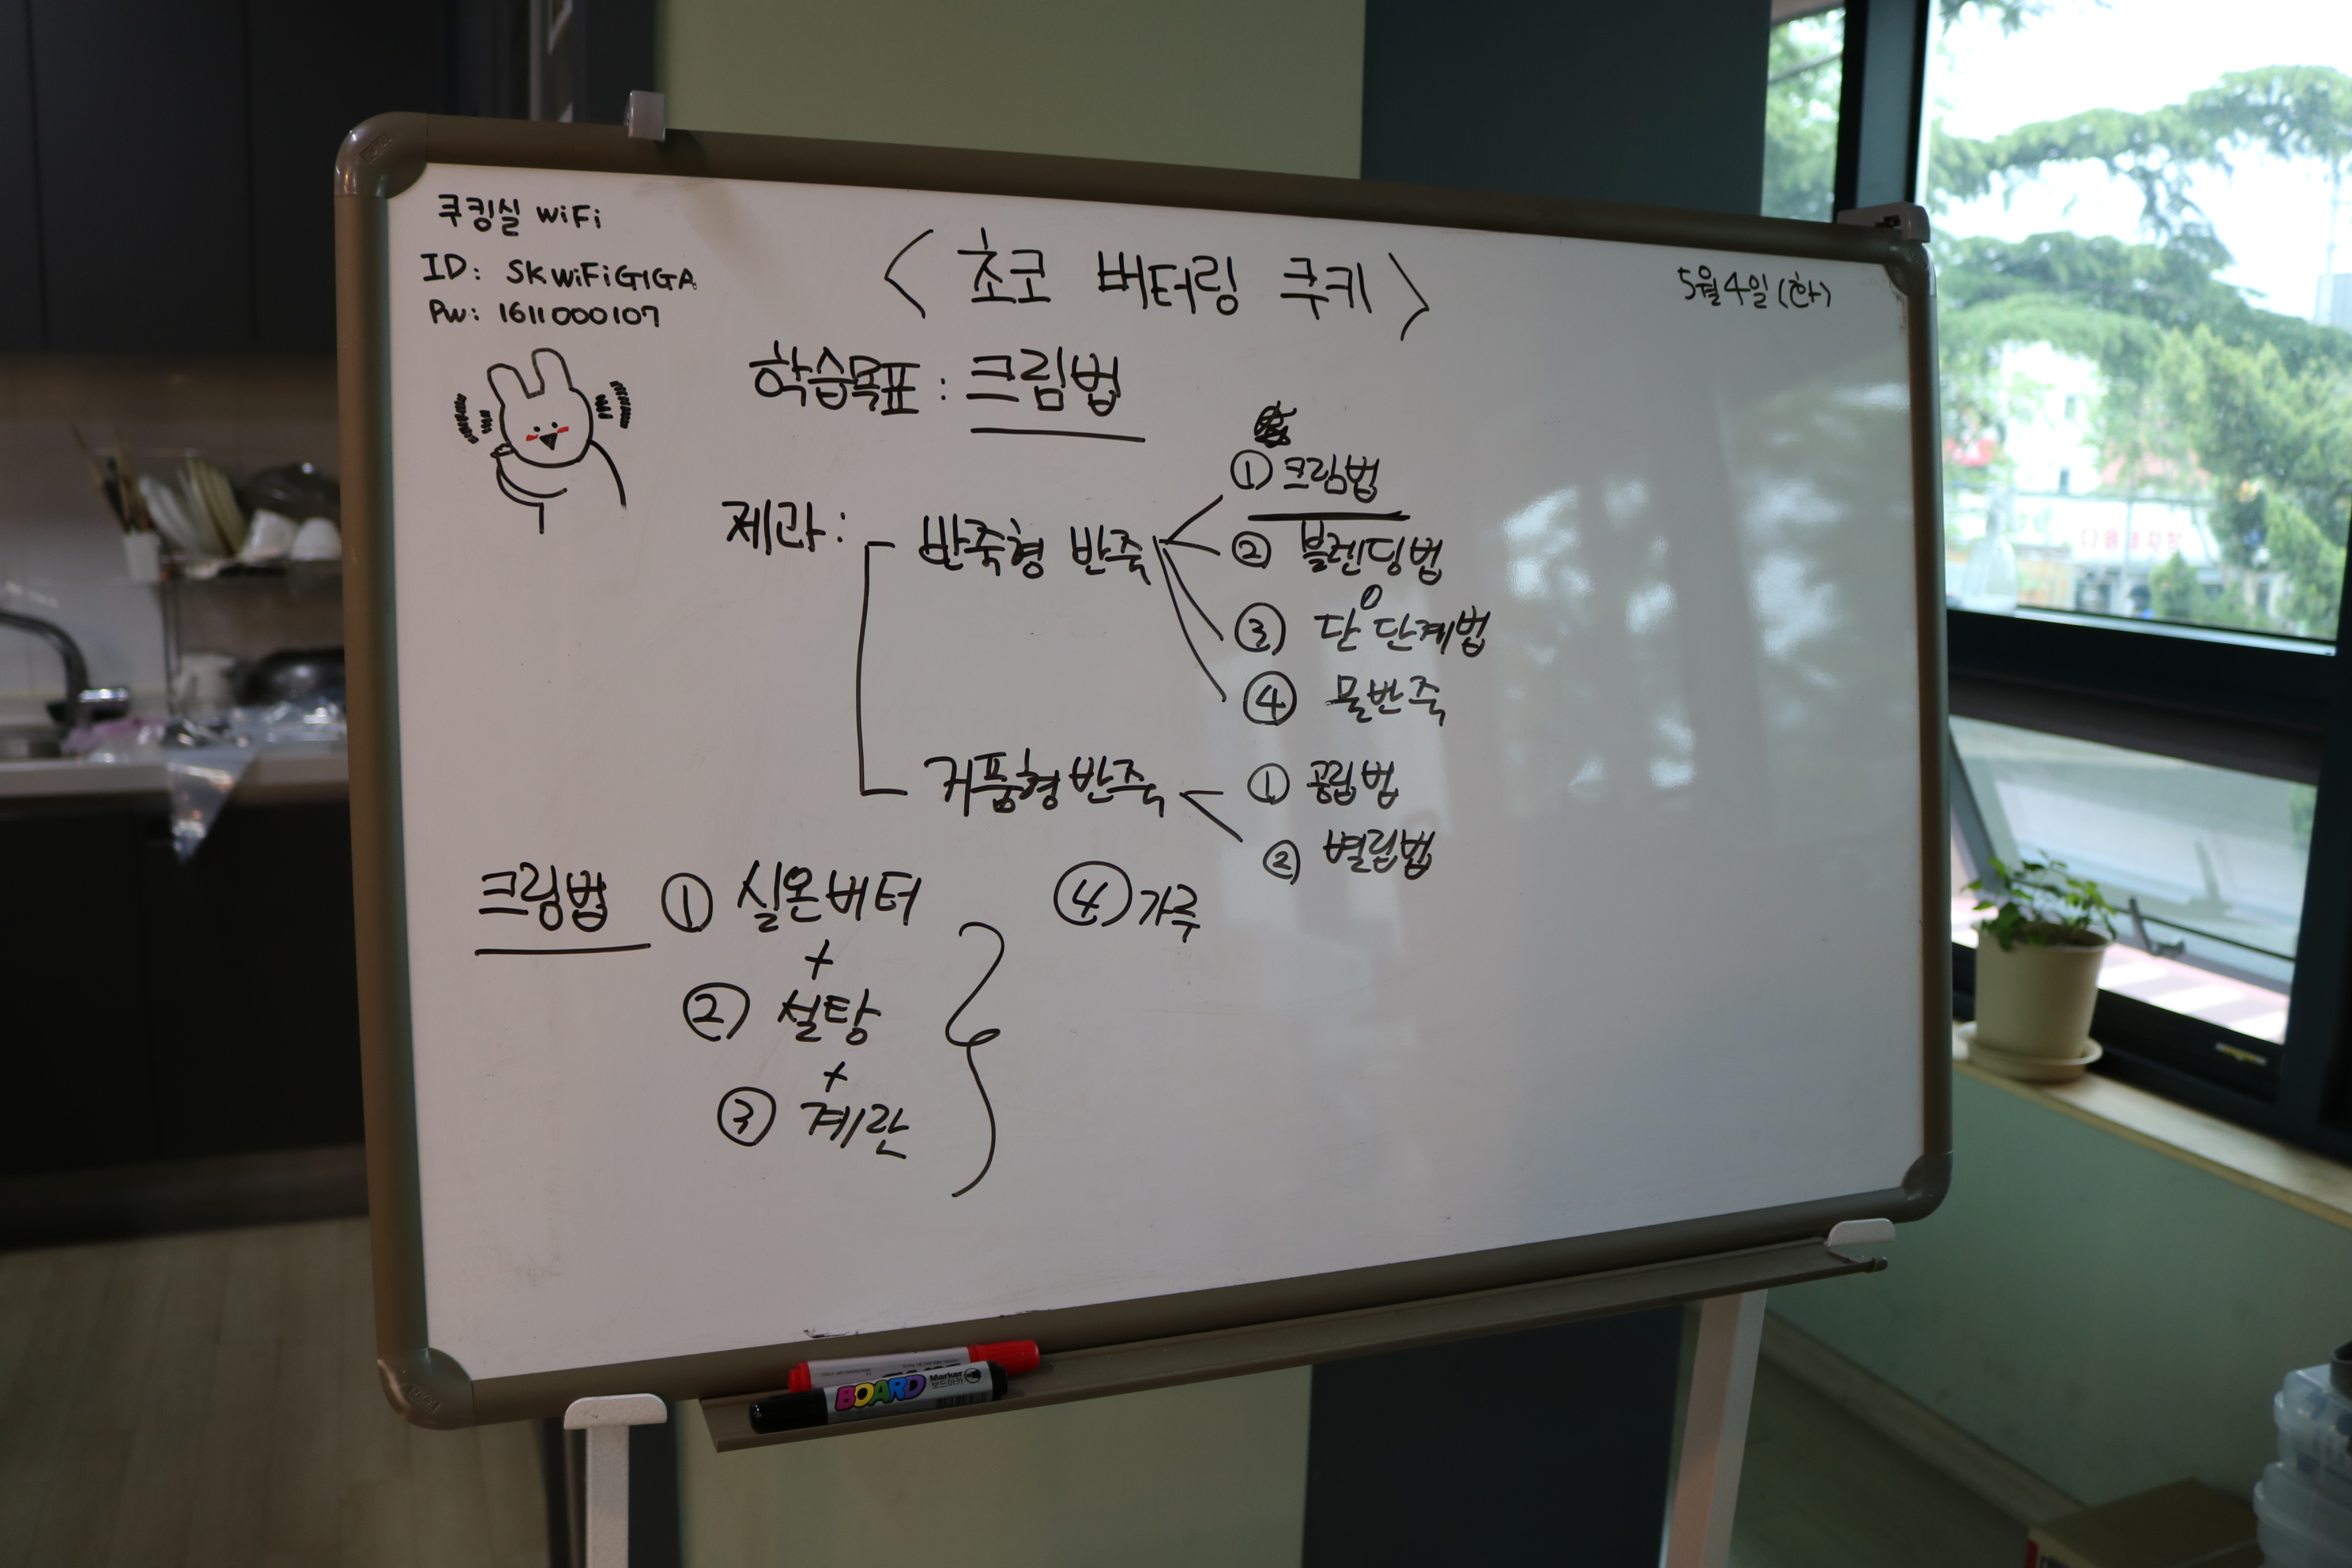 쿠킹실 WiFi
ID: SKWiFiGIGA
PW: 1611000107
< 초코 버터링 쿠키 >
5월 4일 (화)
학습목표 : 크림법
제과:
반죽형 반죽
① 크림법
② 블렌딩법
③ 단단계법
④ 물반죽
거품형 반죽
① 공립법
② 별립법
크림법 ① 실온버터
+
② 설탕
+
③ 계란
④ 가루
BOARD
Marker
보드마카